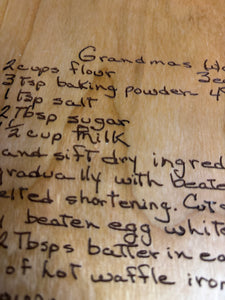 Grandmas Wa
2 cups flour 3 e
3 Tsp baking powder 4
1 tsp salt
2 Tbsp sugar
1 1/2 cup milk
and sift dry ingred
gradually with beate
elted shortening. Cut
beaten egg white
2 Tbsps batter in ea
of hot waffle iron